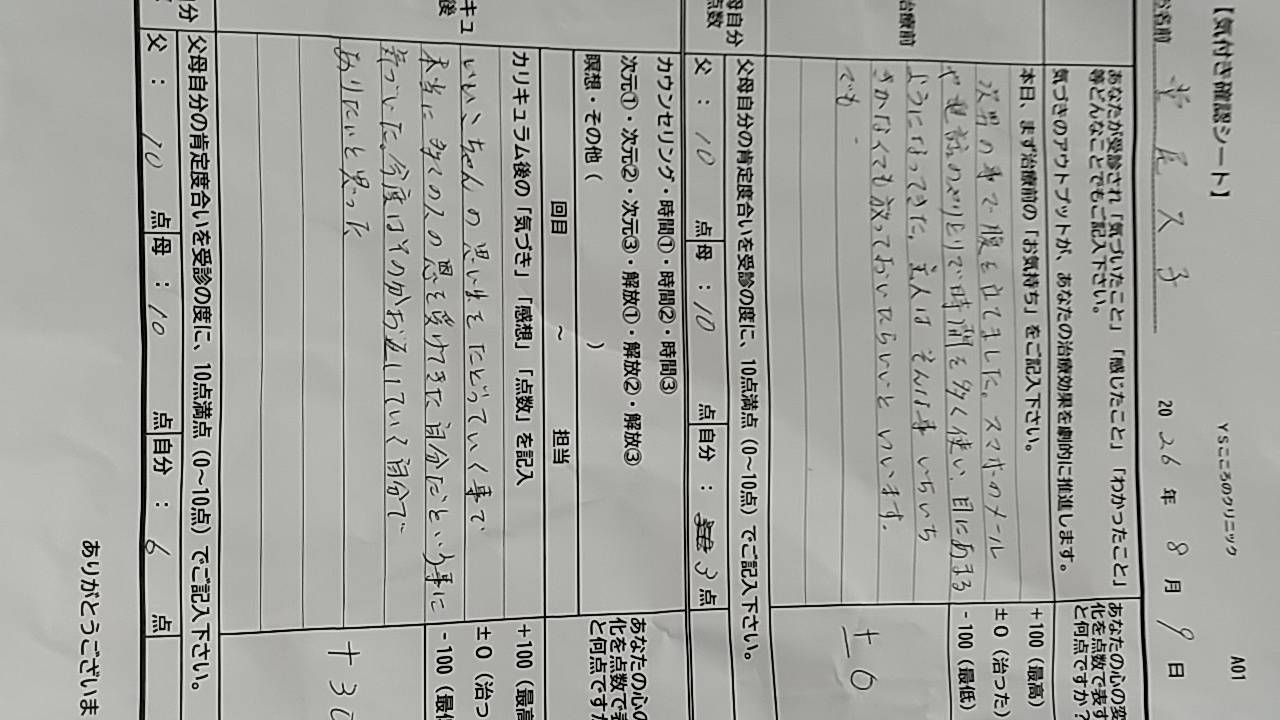 【気付き確認シート】
YSこころのクリニック
A01
お名前
2026年 8月 9日
あなたが受診され「気づいたこと」「感じたこと」「わかったこと」
等どんなことでもご記入下さい。
気づきのアウトプットが、あなたの治療効果を劇的に推進します。
あなたの心の変
化を点数で表す
と何点ですか?
本日、まず治療前の「お気持ち」をご記入下さい。
+100(最高)
±0(治った)
-100(最低)
治療前
次男の事で腹を立てました。スマホのメール
や電話のやりとりで時間を多く使い、目にあまる
ようになってきた。主人はそんな事いちいち
きかなくても放っておいたらいいといいます。
でも
±0
母自分
点数
父母自分の肯定度合いを受診の度に、10点満点(0〜10点)でご記入下さい。
父: 10 点 母: 10 点 自分: 3点
カウンセリング・時間①・時間②・時間③
次元①・次元②・次元③・解放①・解放②・解放③
瞑想・その他( )
あなたの心の
化を点数で表
と何点ですか
回目 〜 担当
キュ
後
カリキュラム後の「気づき」「感想」「点数」を記入
+100(最高
±0(治っ
-100(最低
いいこちゃんの思い出をたどっていく事で
本当に多くの人の恩を受けてきた自分だという事に
気づいた。今度はその分お返ししていく自分で
ありたいと思った
+30
自分
父母自分の肯定度合いを受診の度に、10点満点(0〜10点)でご記入下さい。
父: 10 点 母: 10 点 自分: 6 点
ありがとうございま